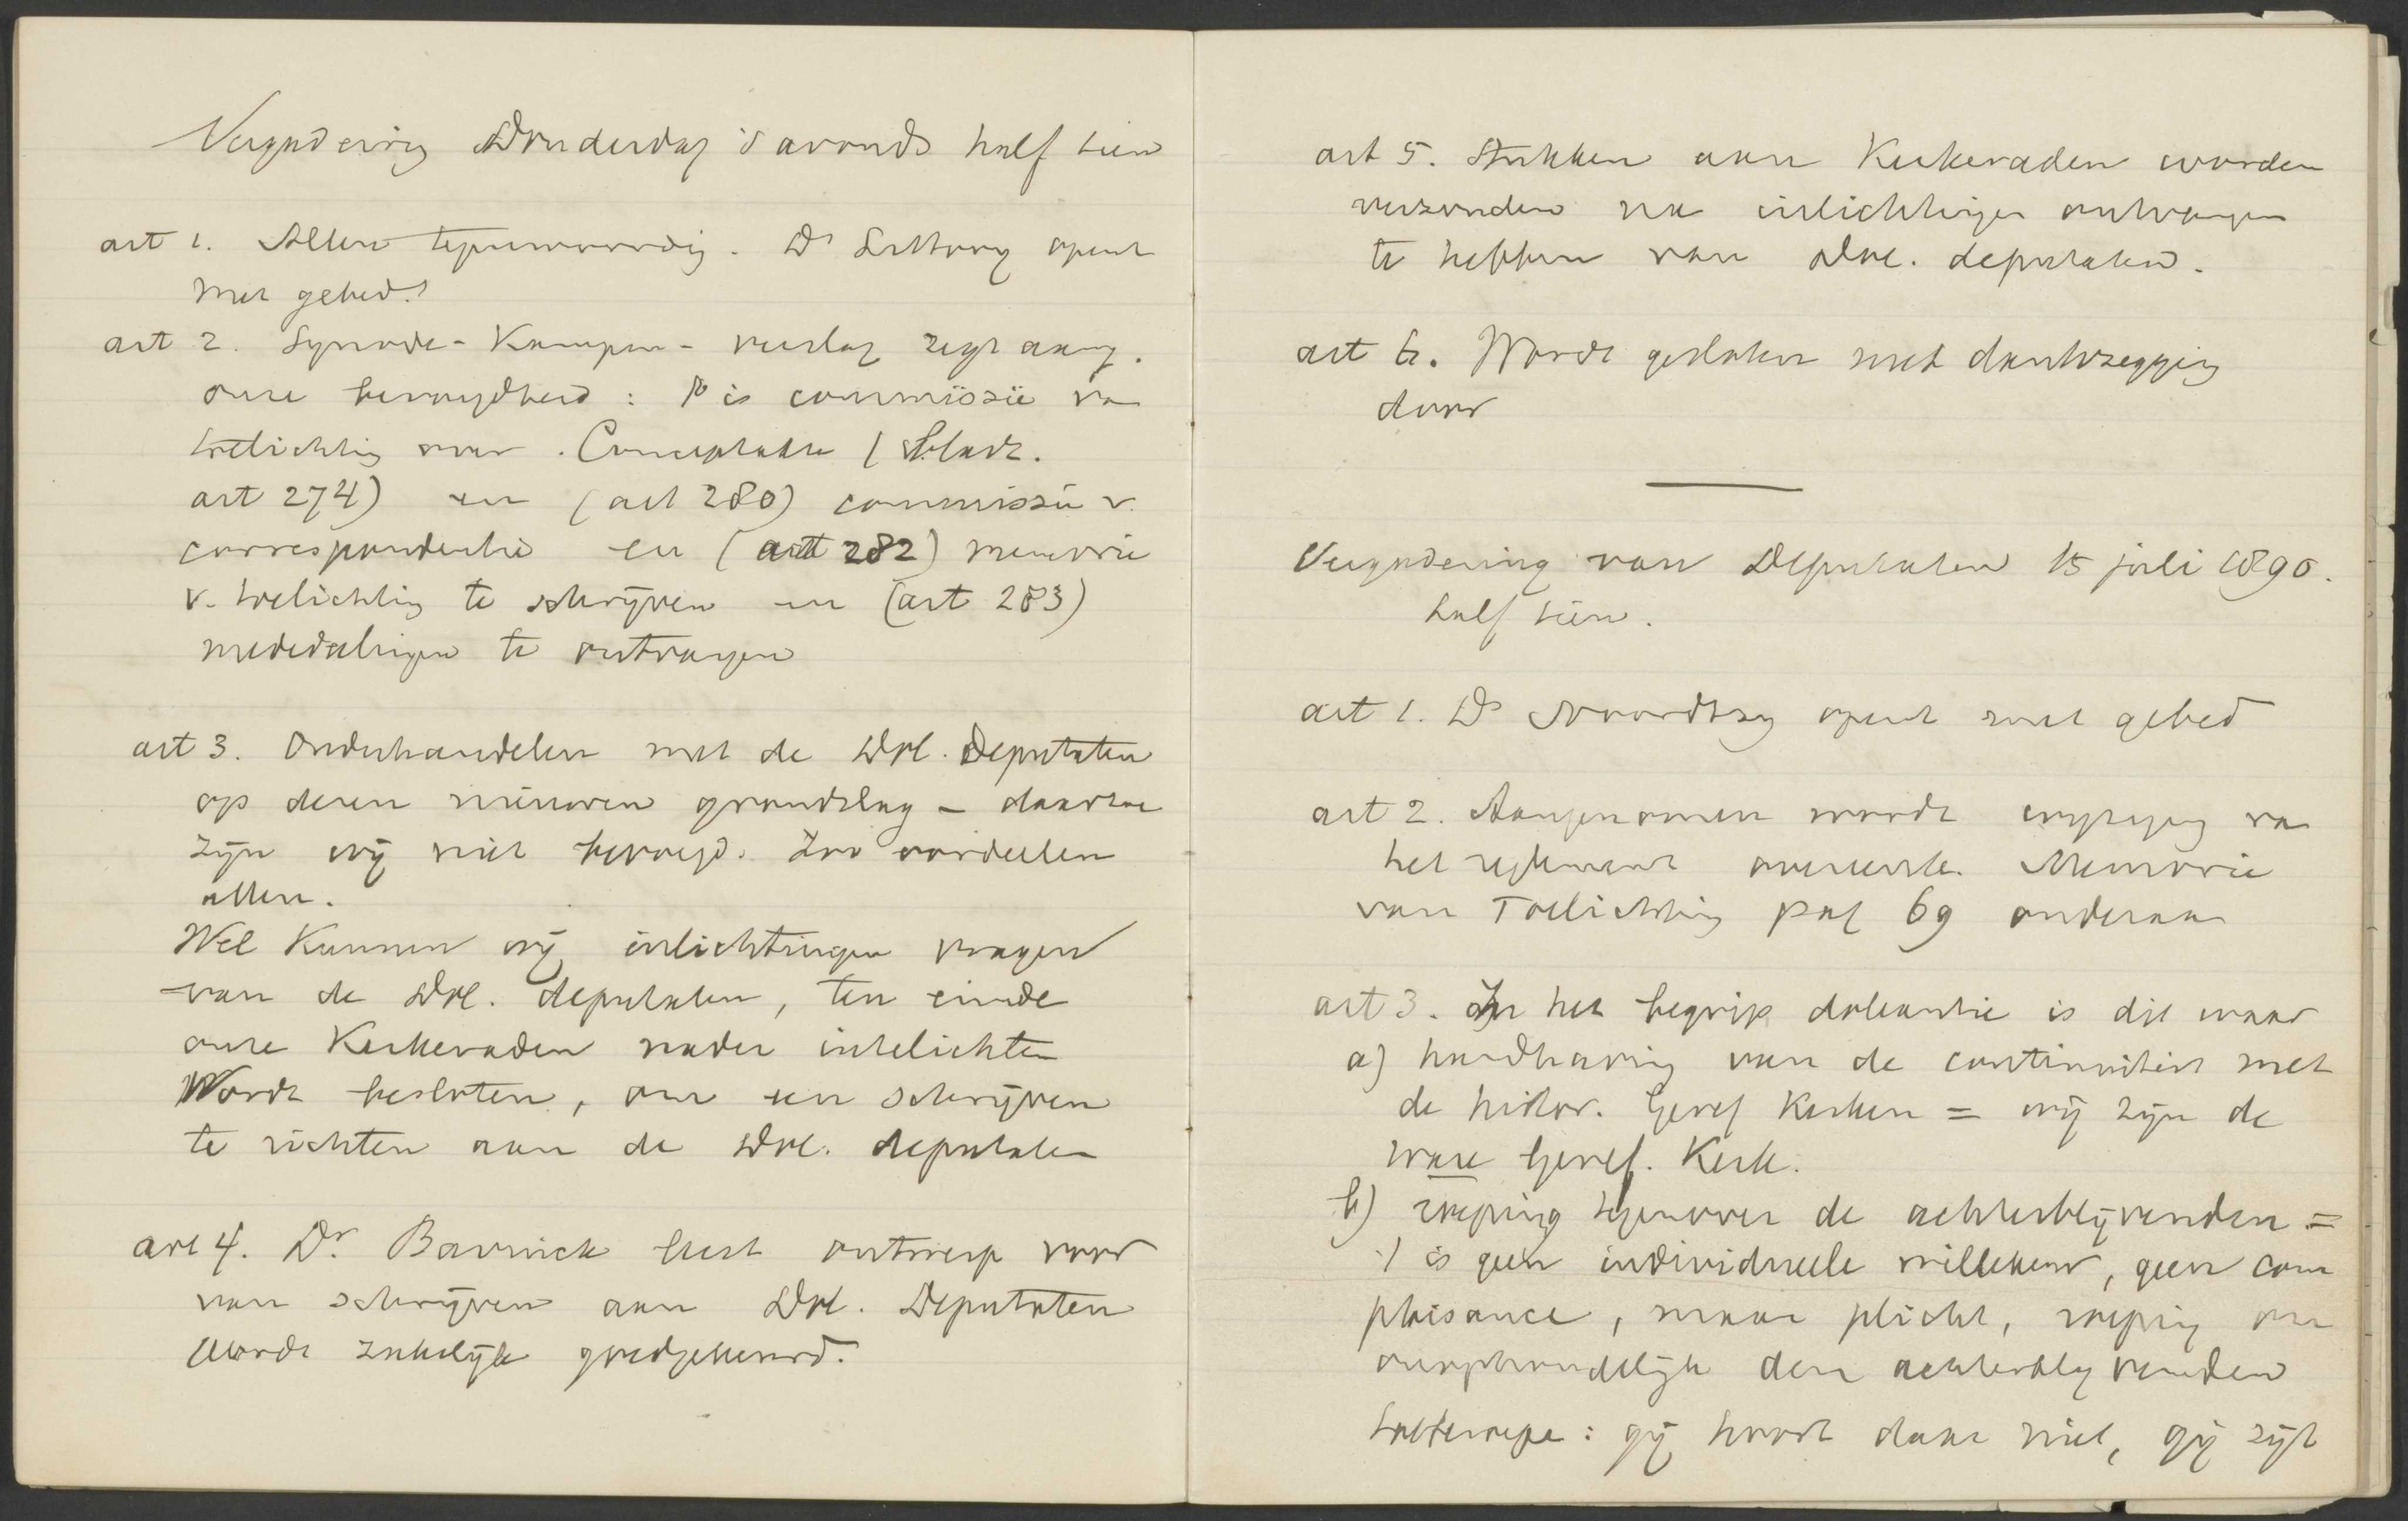 Vergadering Donderdag 's avonds half tien
art 1. Allen tegenwoordig. Ds Littooy opent
met gebed.
art 2. Synode-Kampen- verslag zegt aang.
onze bevoegdheid: 1o is commissie van
toelichting voor Conceptakte (bladz.
art 274) en (art 280) commissie v.
correspondentie en (art 282) memorie
v. toelichting te schrijven en (art 283)
mededeelingen te ontvangen
art 3. Onderhandelen met de Dol. Deputaten
op dezen nieuwen grondslag - daartoe
zijn wij niet bevoegd. Zoo oordeelen
allen.
Wel kunnen wij inlichtingen vragen
van de Dol. deputaten, ten einde
onze Kerkeraden nader intelichten
Wordt besloten, om een schrijven
te richten aan de Dol. deputaten
art 4. Dr. Bavinck leest ontwerp voor
van schrijven aan Dol. Deputaten
Wordt zakelijk goedgekeurd.
art 5. Stukken aan Kerkeraden worden
verzonden na inlichtingen ontvangen
te hebben van Dol. deputaten.
art 6. Wordt gesloten met dankzegging
door
Vergadering van Deputaten 15 juli 1890.
half tien.
art 1. Ds Noordtzij opent met gebed
art 2. Aangenomen wordt wijziging van
het reglement overeenk. Memorie
van Toelichting pag 69 onderaan
art 3. In het begrip doleantie is dit waar
a) handhaving van de continuiteit met
de histor. Geref Kerken = wij zijn de
ware Geref. Kerk.
b) roeping tegenover de achterblijvenden =
't is geen individueele willekeur, geen com
plaisance, maar plicht, roeping om
onophoudelijk den achterblijvenden
toeteroepen: gij hoort daar niet, gij zijt